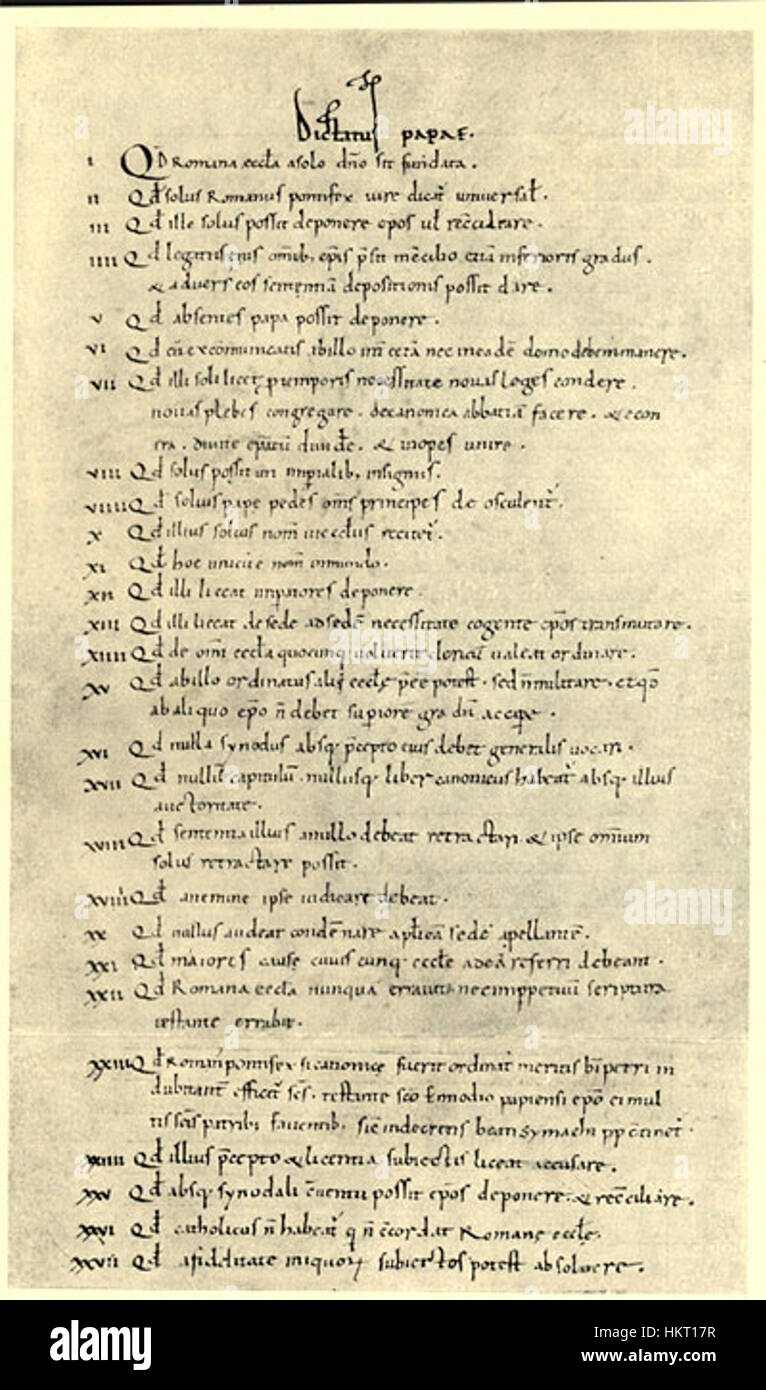 Dictatus papae.
I Qd Romana eccla a solo dno sit fundata.
II Qd solus Romanus pontifex iure dicat universal.
III Qd ille solus possit deponere epos ul recciliare.
IIII Qd legatus eius omib, epis psit in ccilio etia inferioris gradus.
& adversus eos sententia depositionis possit dare.
V Qd absentes papa possit deponere.
VI Qd cu excomunicatis ab illo int cetera nec in eade domo debem manere.
VII Qd illi soli licet p temporis necessitate novas leges condere.
novas plebes congregare. de canonica abbatia facere. & econ
tra. divite epatu dividere. & inopes unire.
VIII Qd solus possit uti impialib, insigniis.
VIIII Qd solius pape pedes oms principes deosculent.
X Qd illius solius nom in ecclis recitet.
XI Qd hoc unicu e nom in mundo.
XII Qd illi liceat impatores deponere.
XIII Qd illi liceat de sede ad sede necessitate cogente epos transmutare.
XIIII Qd de omi eccla quocunq voluerit clericu ualeat ordinare.
XV Qd ab illo ordinatus alii eccle pee potest. sed n militare. et qd
ab aliquo epo n debet supiore gradu accipe.
XVI Qd nulla synodus absq pcepto eius debet generalis uocari.
XVII Qd nullu capitulu nullusq liber canonicus habeat absq illius
auctoritate.
XVIII Qd sententia illius a nullo debeat retractari & ipse omnium
solus retractare possit.
XVIIII Qd a nemine ipse iudicari debeat.
XX Qd nullus audeat condemnare aplica sede apellante.
XXI Qd maiores cause cuiuscunq eccle ad ea referri debeant.
XXII Qd Romana eccla nunqua erravit nec imppetuu scriptura
testante errabit.
XXIII Qd Roman pontifex si canonice fuerit ordinat meritis bi petri in
dubitant efficit scs. testante sco Ennodio papiensi epo ei mul
tis scis patribi faventib, sic in decretis beati Symachi pp ctinet.
XXIIII Qd illius pcepto & licentia subiectis liceat accusare.
XXV Qd absq synodali cventu possit epos deponere & recciliare.
XXVI Qd catholicus n habeat q n ccordat Romane eccle.
XXVII Qd a fidelitate iniquor subiectos potest absolvere.
alamy
alamy
alamy
alamy
Image ID: HKT17R
www.alamy.com